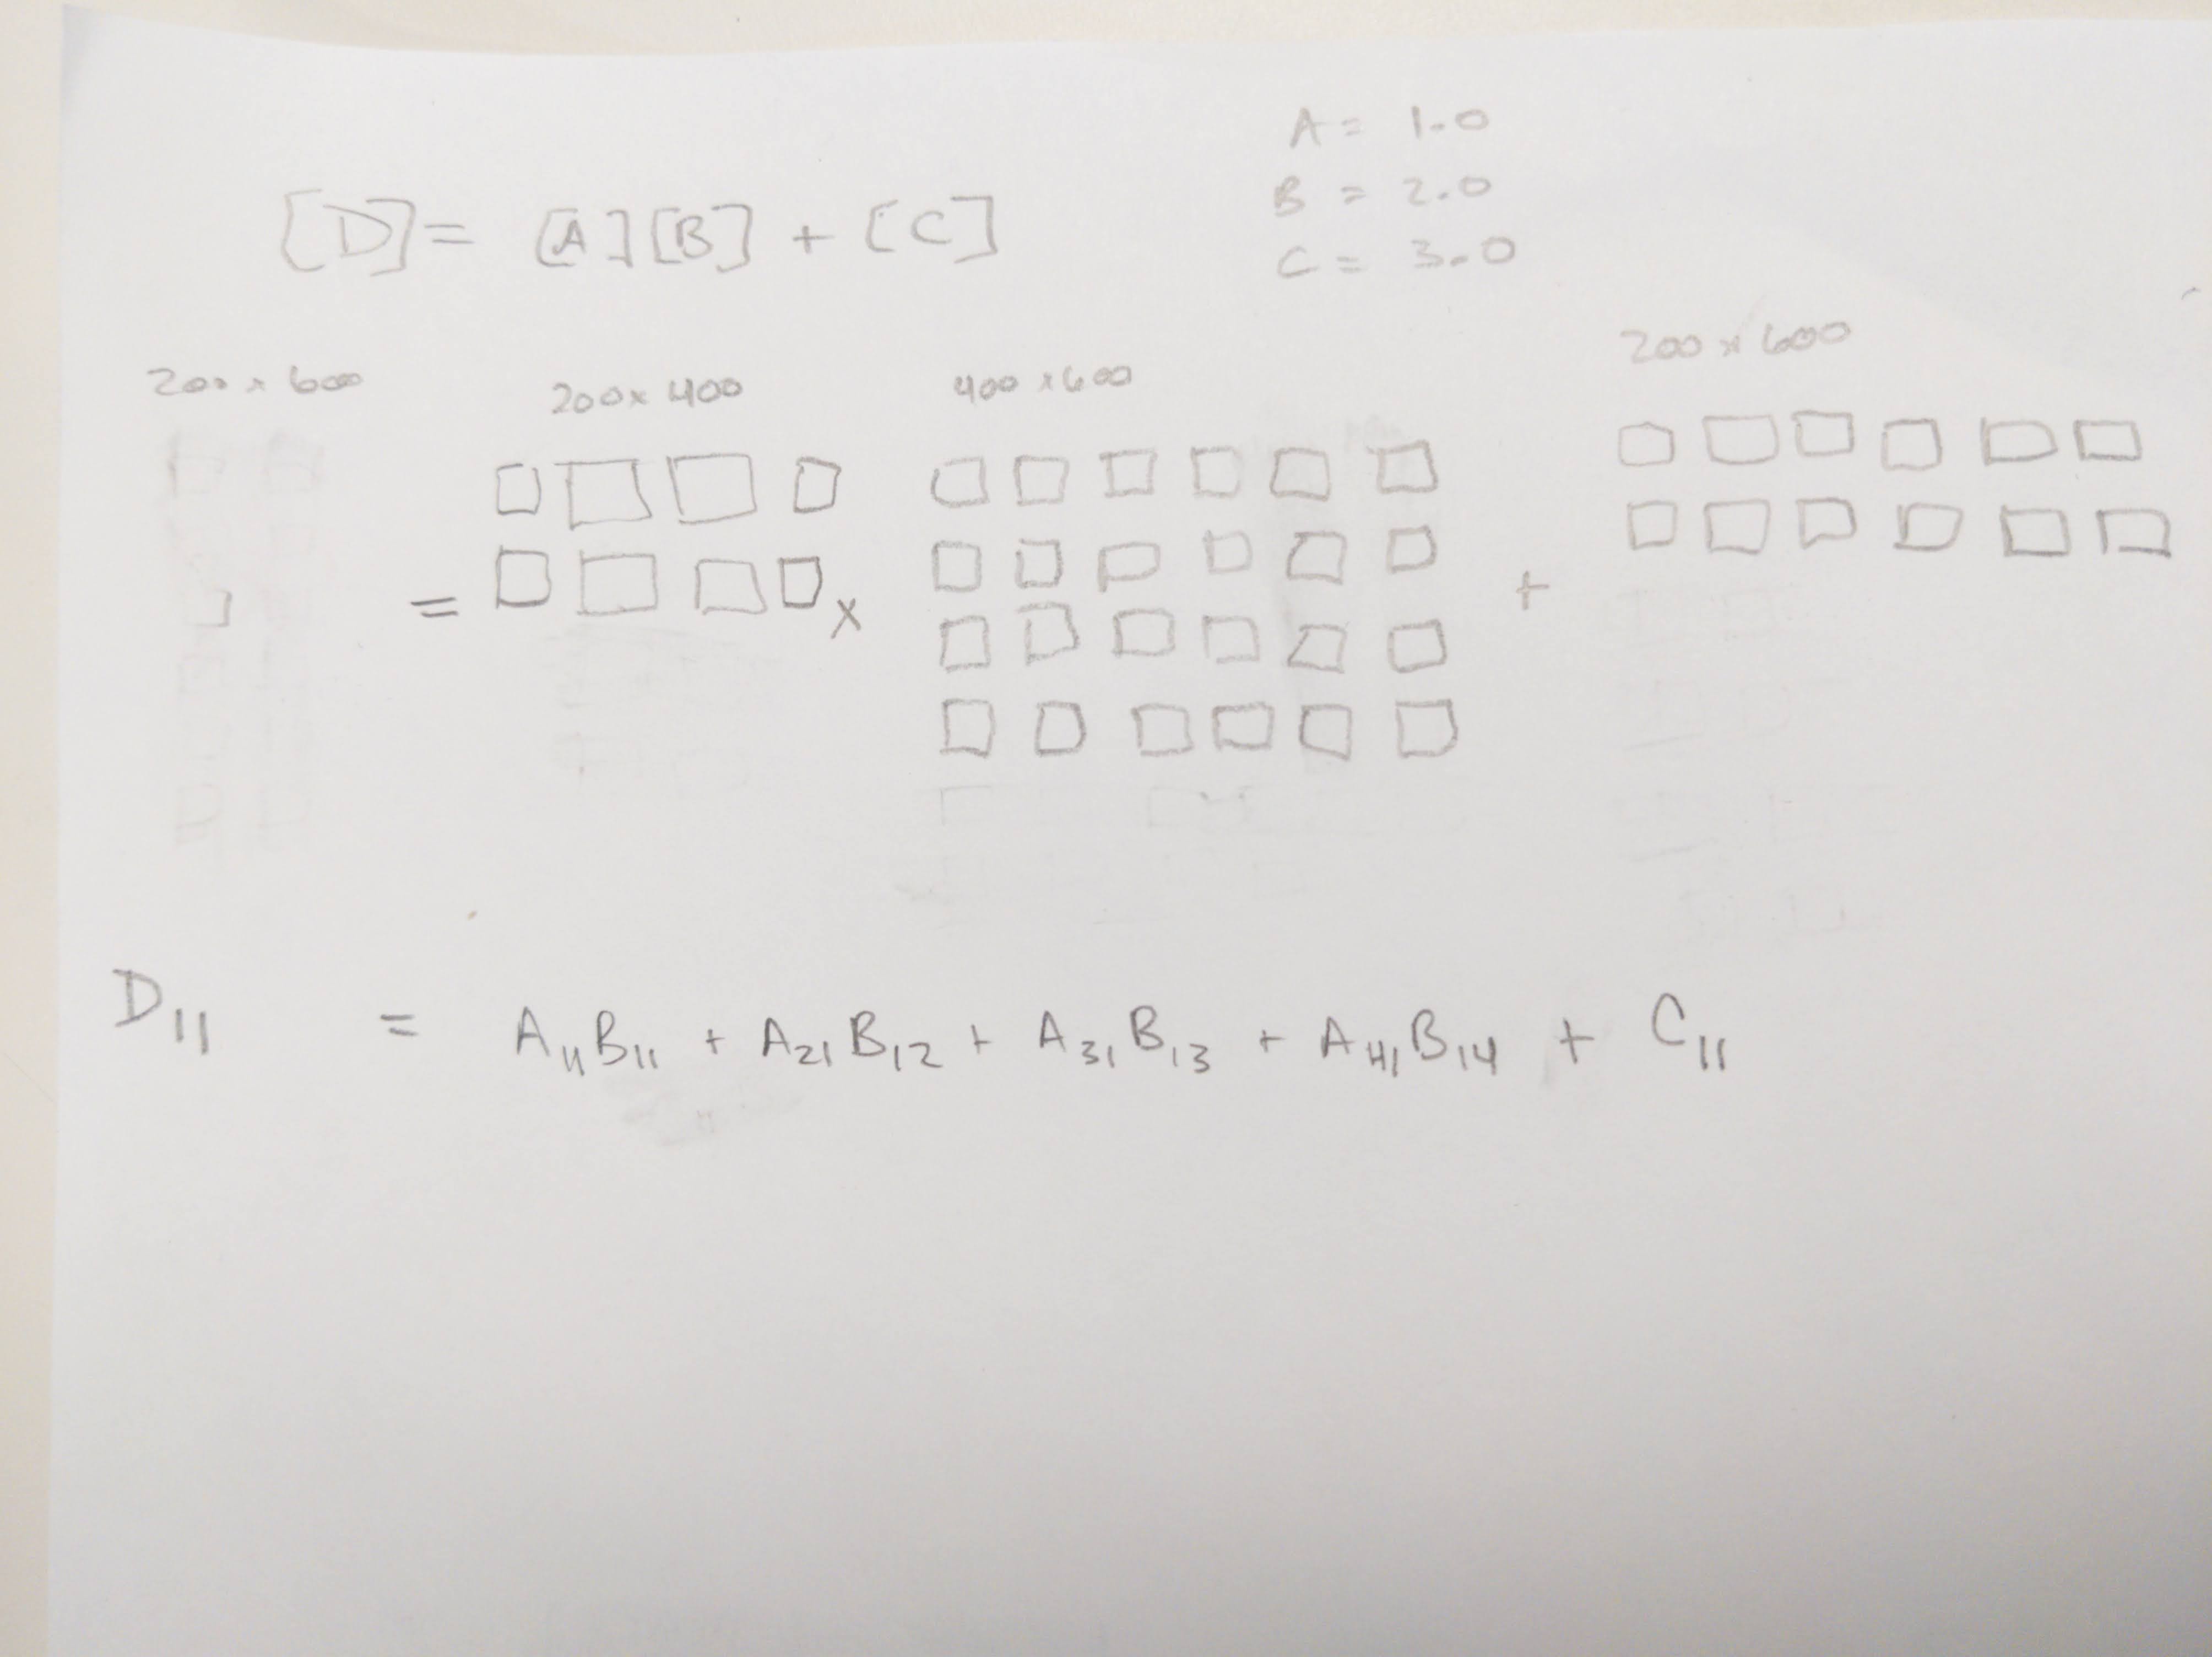 A = 1.0
B = 2.0
C = 3.0
[D] = [A][B] + [C]
200 x 600
200 x 400
400 x 600
200 x 600
= x +
D11 = A11B11 + A21B12 + A31B13 + A41B14 + C11